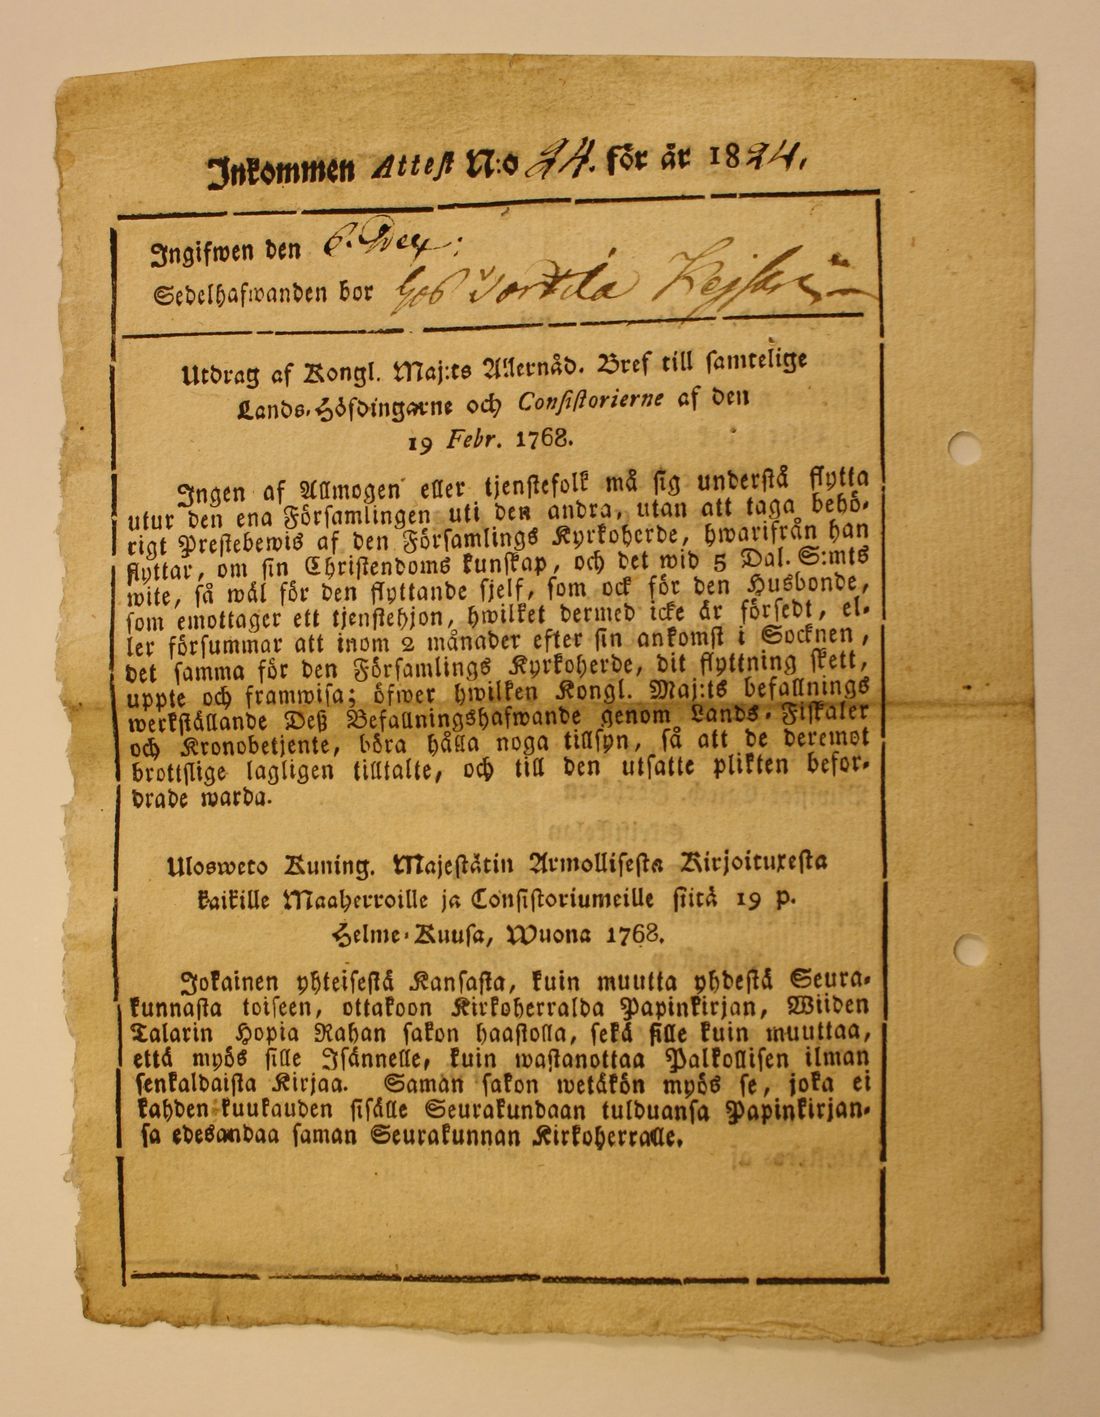 Inkommen Attest N:o 24. för år 1824.
Ingifwen den 6. Dec:
Sedelhafwanden bor
Utdrag af Kongl. Maj:ts Allernåd. Bref till samtelige
Lands-Höfdingarne och Consistorierne af den
19 Febr. 1768.
Ingen af Allmogen eller tjenstefolk må sig understå flytta
utur den ena Församlingen uti den andra, utan att taga behö-
rigt Prestebewis af den Församlings Kyrkoherde, hwarifrån han
flyttar, om sin Christendoms kunskap, och det wid 5 Dal. S:mts
wite, så wäl för den flyttande sjelf, som ock för den Husbonde,
som emottager ett tjenstehjon, hwilket dermed icke är försedt, el-
ler försummar att inom 2 månader efter sin ankomst i Socknen,
det samma för den Församlings Kyrkoherde, dit flyttning skett,
uppte och framwisa; öfwer hwilken Kongl. Maj:ts befallnings
werkställande Deß Befallningshafwande genom Lands-Fiskaler
och Kronobetjente, böra hålla noga tillsyn, så att de deremot
brottslige lagligen tilltalte, och till den utsatte plikten befor-
drade warda.
Ulosweto Kuning. Majestätin Armollisesta Kirjoituxesta
kaikille Maaherroille ja Consistoriumeille siitä 19 p.
Helme-Kuusa, Wuona 1768.
Jokainen yhteisestä Kansasta, kuin muutta yhdestä Seura-
kunnasta toiseen, ottakoon Kirkoherralda Papinkirjan, Wiiden
Talarin Hopia Rahan sakon haastolla, sekä sille kuin muuttaa,
että myös sille Isännelle, kuin wastanottaa Palkollisen ilman
senkaldaista Kirjaa. Saman sakon wetäkön myös se, joka ei
kahden kuukauden sisälle Seurakundaan tulduansa Papinkirjan-
sa edesandaa saman Seurakunnan Kirkoherralle.